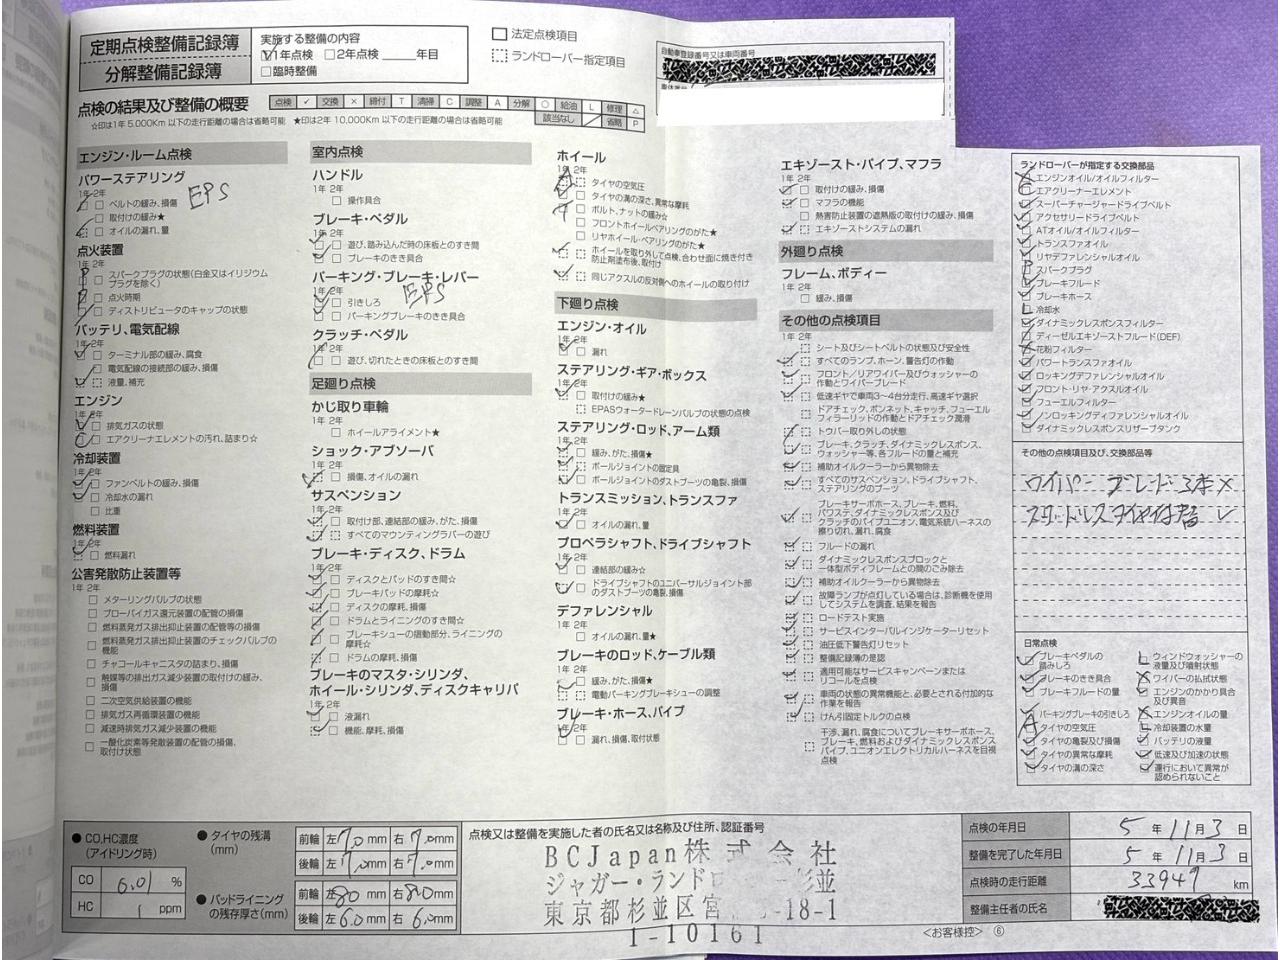 定期点検整備記録簿
分解整備記録簿
実施する整備の内容
1年点検 2年点検 年目
臨時整備
法定点検項目
ランドローバー指定項目
自動車登録番号又は車両番号
点検の結果及び整備の概要
点検 ✓ 交換 × 締付 T 清掃 C 調整 A 分解 ○ 給油 L 修理 △
該当なし / 省略 P
☆印は1年 5,000Km 以下の走行距離の場合は省略可能 ★印は2年 10,000Km 以下の走行距離の場合は省略可能
エンジン・ルーム点検
パワーステアリング
EPS
1年 2年
ベルトの緩み、損傷
取付けの緩み★
オイルの漏れ、量
点火装置
1年 2年
スパークプラグの状態(白金又はイリジウム
プラグを除く)
点火時期
ディストリビュータのキャップの状態
バッテリ、電気配線
1年 2年
ターミナル部の緩み、腐食
電気配線の接続部の緩み、損傷
液量、補充
エンジン
1年 2年
排気ガスの状態
エアクリーナエレメントの汚れ、詰まり☆
冷却装置
1年 2年
ファンベルトの緩み、損傷
冷却水の漏れ
比重
燃料装置
1年 2年
燃料漏れ
公害発散防止装置等
1年 2年
メターリングバルブの状態
ブローバイガス還元装置の配管の損傷
燃料蒸発ガス排出抑止装置の配管等の損傷
燃料蒸発ガス排出抑止装置のチェックバルブの
機能
チャコールキャニスタの詰まり、損傷
触媒等の排出ガス減少装置の取付けの緩み、
損傷
二次空気供給装置の機能
排気ガス再循環装置の機能
減速時排気ガス減少装置の機能
一酸化炭素等発散装置の配管の損傷、
取付け状態
室内点検
ハンドル
1年 2年
操作具合
ブレーキ・ペダル
1年 2年
遊び、踏み込んだ時の床板とのすき間
ブレーキのきき具合
パーキング・ブレーキ・レバー
1年 2年
EPS
引きしろ
パーキングブレーキのきき具合
クラッチ・ペダル
1年 2年
遊び、切れたときの床板とのすき間
足廻り点検
かじ取り車輪
1年 2年
ホイールアライメント★
ショック・アブソーバ
1年 2年
損傷、オイルの漏れ
サスペンション
1年 2年
取付け部、連結部の緩み、がた、損傷
すべてのマウンティングラバーの遊び
ブレーキ・ディスク、ドラム
1年 2年
ディスクとパッドのすき間☆
ブレーキパッドの摩耗☆
ディスクの摩耗、損傷
ドラムとライニングのすき間☆
ブレーキシューの摺動部分、ライニングの
摩耗☆
ドラムの摩耗、損傷
ブレーキのマスタ・シリンダ、
ホイール・シリンダ、ディスクキャリパ
1年 2年
液漏れ
機能、摩耗、損傷
ホイール
1年 2年
タイヤの空気圧
タイヤの溝の深さ、異常な摩耗
ボルト、ナットの緩み☆
フロントホイールベアリングのがた★
リヤホイール・ベアリングのがた★
ホイールを取り外して点検、合わせ面に焼き付き
防止剤塗布後、取付け
同じアクスルの反対側へのホイールの取り付け
下廻り点検
エンジン・オイル
1年 2年
漏れ
ステアリング・ギア・ボックス
1年 2年
取付けの緩み★
EPASウォータードレーンバルブの状態の点検
ステアリング・ロッド、アーム類
1年 2年
緩み、がた、損傷★
ボールジョイントの固定具
ボールジョイントのダストブーツの亀裂、損傷
トランスミッション、トランスファ
1年 2年
オイルの漏れ、量
プロペラシャフト、ドライブシャフト
1年 2年
連結部の緩み☆
ドライブシャフトのユニバーサルジョイント部
のダストブーツの亀裂、損傷
デファレンシャル
1年 2年
オイルの漏れ、量★
ブレーキのロッド、ケーブル類
1年 2年
緩み、がた、損傷★
電動パーキングブレーキシューの調整
ブレーキ・ホース、パイプ
1年 2年
漏れ、損傷、取付状態
エキゾースト・パイプ、マフラ
1年 2年
取付けの緩み、損傷
マフラの機能
熱害防止装置の遮熱版の取付けの緩み、損傷
エキゾーストシステムの漏れ
外廻り点検
フレーム、ボディー
1年 2年
緩み、損傷
その他の点検項目
1年 2年
シート及びシートベルトの状態及び安全性
すべてのランプ、ホーン、警告灯の作動
フロント/リアワイパー及びウォッシャーの
作動とワイパーブレード
低速ギヤで車両3~4台分走行、高速ギヤ選択
ドアチェック、ボンネット、キャッチ、フューエル
フィラーリッドの作動とドアチェック潤滑
トウバー取り外しの状態
ブレーキ、クラッチ、ダイナミックレスポンス、
ウォッシャー等、各フルードの量と補充
補助オイルクーラーから異物除去
すべてのサスペンション、ドライブシャフト、
ステアリングのブーツ
ブレーキサーボホース、ブレーキ、燃料、
パワステ、ダイナミックレスポンス及び
クラッチのパイプユニオン、電気系統ハーネスの
擦り切れ、漏れ、腐食
フルードの漏れ
ダイナミックレスポンスブロックと
一体型ボディフレームとの間のごみ除去
補助オイルクーラーから異物除去
故障ランプが点灯している場合は、診断機を使用
してシステムを調査、結果を報告
ロードテスト実施
サービスインターバルインジケーターリセット
油圧低下警告灯リセット
整備記録簿の是認
適用可能なサービスキャンペーンまたは
リコールを点検
車両の状態の異常機能と、必要とされる付加的な
作業を報告
けん引固定トルクの点検
干渉、漏れ、腐食についてブレーキサーボホース、
ブレーキ、燃料およびダイナミックレスポンス
パイプ、ユニオンエレクトリカルハーネスを目視
点検
ランドローバーが指定する交換部品
エンジンオイル/オイルフィルター
エアクリーナーエレメント
スーパーチャージャードライブベルト
アクセサリードライブベルト
ATオイル/オイルフィルター
トランスファオイル
リヤデファレンシャルオイル
スパークプラグ
ブレーキフルード
ブレーキホース
冷却水
ダイナミックレスポンスフィルター
ディーゼルエキゾーストフルード(DEF)
花粉フィルター
パワートランスファオイル
ロッキングデファレンシャルオイル
フロント・リヤ・アクスルオイル
フューエルフィルター
ノンロッキングディファレンシャルオイル
ダイナミックレスポンスリザーブタンク
その他の点検項目及び、交換部品等
ワイパーブレード3本 ×
スタットレスタイヤ付替 ✓
日常点検
ブレーキペダルの
踏みしろ
ブレーキのきき具合
ブレーキフルードの量
パーキングブレーキの引きしろ
タイヤの空気圧
タイヤの亀裂及び損傷
タイヤの異常な摩耗
タイヤの溝の深さ
ウィンドウォッシャーの
液量及び噴射状態
ワイパーの払拭状態
エンジンのかかり具合
及び異音
エンジンオイルの量
冷却装置の水量
バッテリの液量
低速及び加速の状態
運行において異常が
認められないこと
CO、HC濃度
(アイドリング時)
CO 0.01 %
HC 1 ppm
タイヤの残溝
(mm)
前輪 左 7.0 mm 右 7.0 mm
後輪 左 7.0 mm 右 7.0 mm
パッドライニング
の残存厚さ(mm)
前輪 左 8.0 mm 右 8.0 mm
後輪 左 6.0 mm 右 6.0 mm
点検又は整備を実施した者の氏名又は名称及び住所、認証番号
BCJapan株式会社
ジャガー・ランドロ 杉並
東京都杉並区宮 -18-1
1-10161
点検の年月日 5 年 11 月 3 日
整備を完了した年月日 5 年 11 月 3 日
点検時の走行距離 33947 km
整備主任者の氏名
<お客様控> ⑥